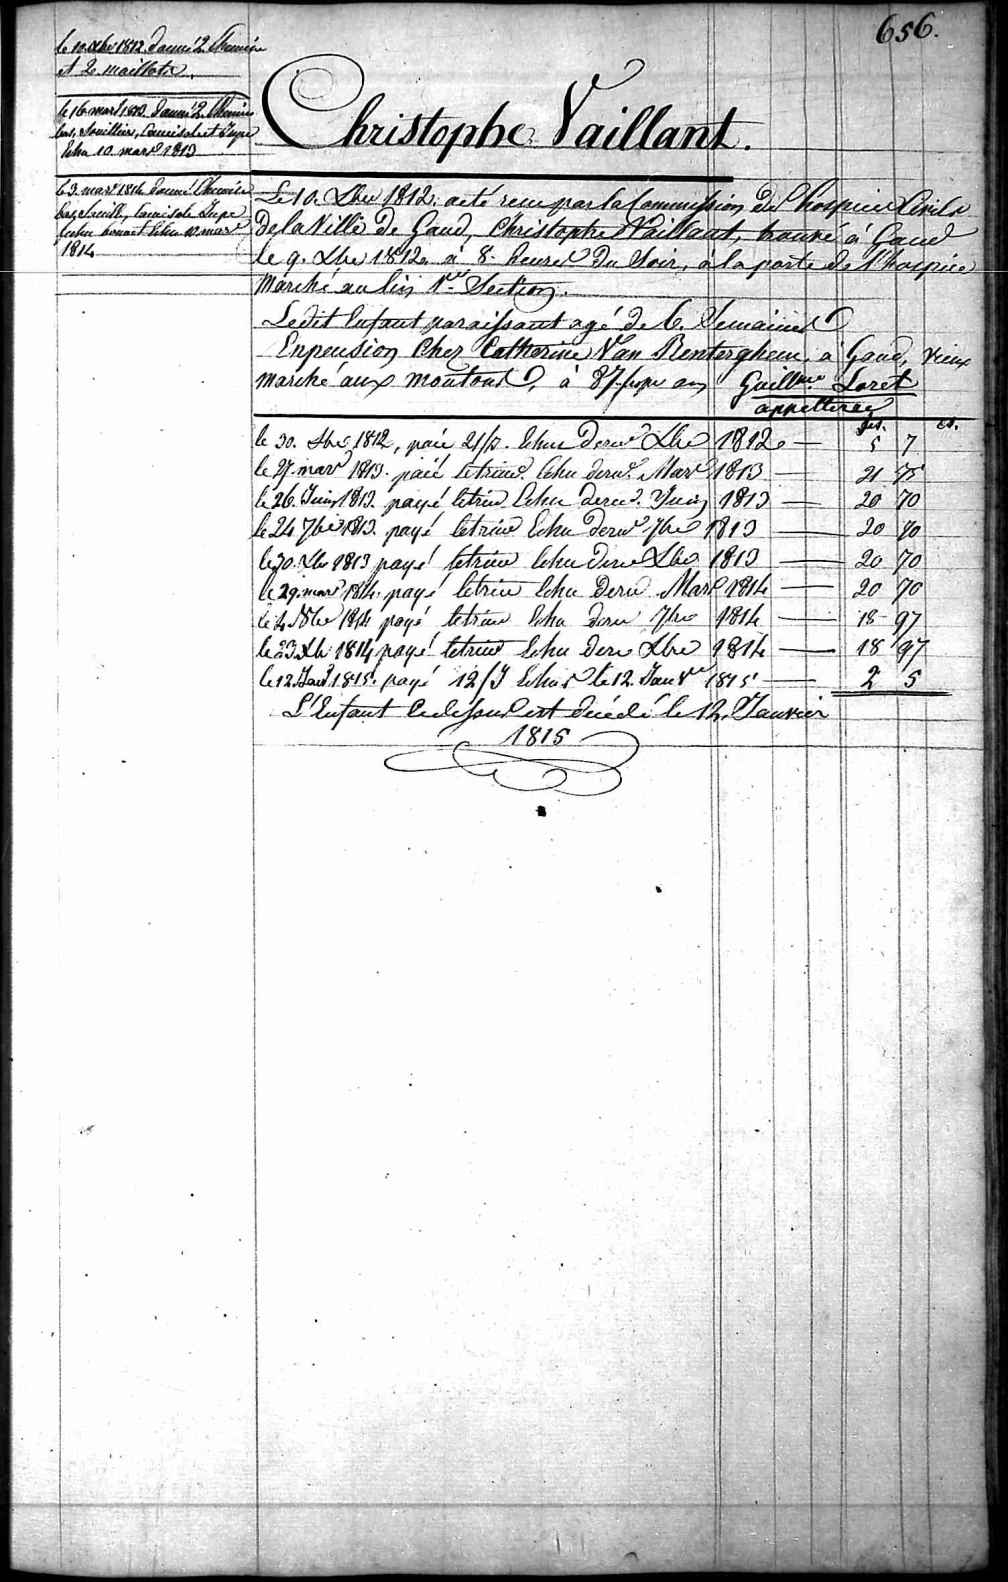 656.
le 10. Xbre 1812. donné 2 Chemise
et 2 maillots.
le 16 mars 1813. donné 2 Chemises
bas, Souillier, Camisole et Jupe
Echu 10 mars 1813
le 9. mars 1814 donné Chemise
bas, Souill., Camisole Jupe
fichu bonnet Echu 10 mars
1814
Christophe Vaillant.
Le 10. Xbre 1812. a eté recu par la Commission des hospices Civils
De la Ville De Gand, Christophe Vaillant, trouvé à Gand
le 9. Xbre 1812. à 8. heures Du Soir, à la porte de l'hospice
Marché au lin 1re Section.
Ledit Enfant paraissant agé de 6. Semaines
En pension Chez Catherine Van Renterghem, à Gand, vieux
marché aux moutons, à 87. fr par an Guillme Loret
appetteren
frs. cs.
le 30. Xbre 1812, paié 21/J. Echu dernr Xbre 1812. — 5 7
le 27 mars 1813. paié le trime. Echu dernr. Mars 1813 — 21 75
le 26. Juin 1813. payé le trim Echu dernr. Juin 1813 — 20 70
le 24 7bre 1813. payé le trim Echu dernr 7bre 1813 — 20 70
le 30. Xbre 1813 payé le trim Echu dern Xbre 1813 — 20 70
le 29. mars 1814. payé le trim Echu Dern Mars 1814 — 20 70
le 4 Nbre 1814 payé le trim Echu dern 7bre 1814 — 18 97
le 23 Xbr 1814 payé le trim Echu dern Xbre 1814 — 18 97
le 12 Janv 1815. payé 12/J Echus le 12. Janvr 1815 — 2 5
L'Enfant Cidessus est décédé le 12. Janvier
1815